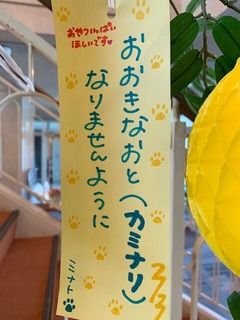 おやついっぱい
ほしいです♥
おおきなおと(カミナリ)
なりませんように
ミナト